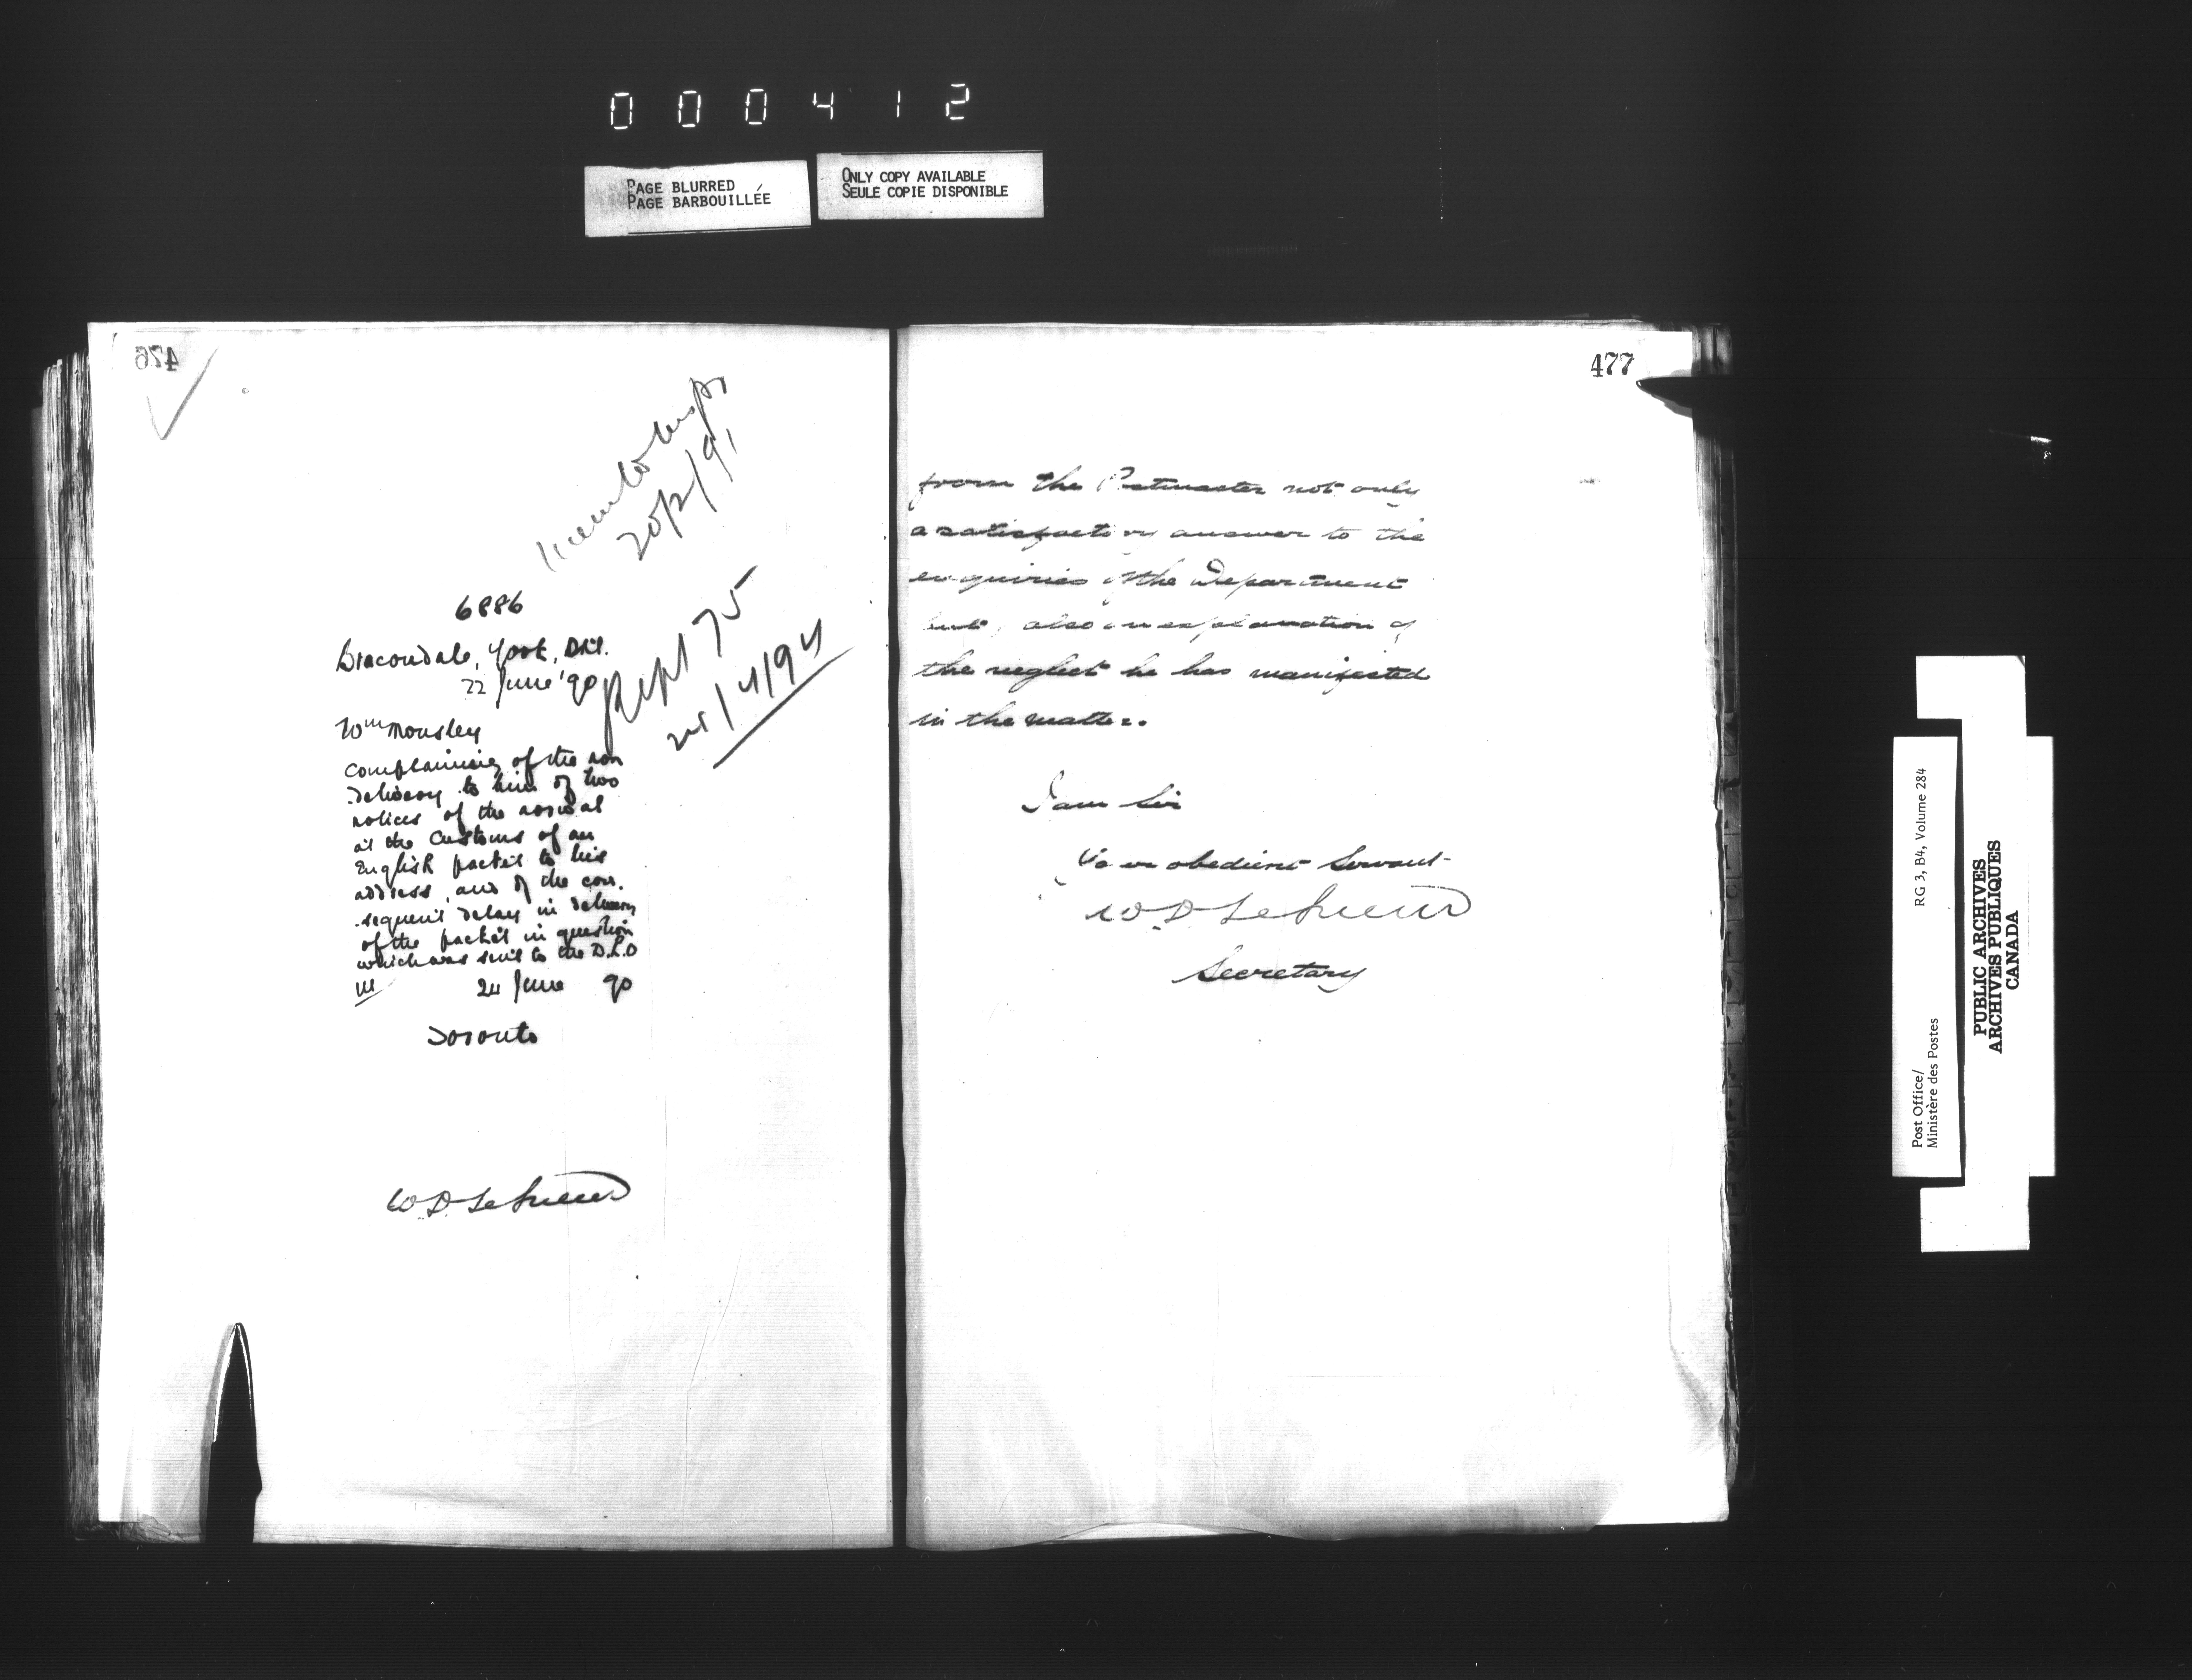 000412
PAGE BLURRED
PAGE BARBOUILLÉE
ONLY COPY AVAILABLE
SEULE COPIE DISPONIBLE
476
20/2/91
6886
Bracondale, York, Dist.
22 June '90
Rept 75
Wm Mousley
complaining of the non
delivery to him of two
notices of the arrival
at the Customs of an
English packet to his
address, and of the con-
sequent delay in delivery
of the packet in question
which was sent to the D.L.O
24 June 90
Toronto
W D LeSueur
477
from the Postmaster not only
a satisfactory answer to the
enquiries of the Department
but, also an explanation of
the neglect he has manifested
in the matter.
I am Sir
Your obedient Servant
W D LeSueur
Secretary
Post Office/
Ministère des Postes
RG 3, B4, Volume 284
PUBLIC ARCHIVES
ARCHIVES PUBLIQUES
CANADA